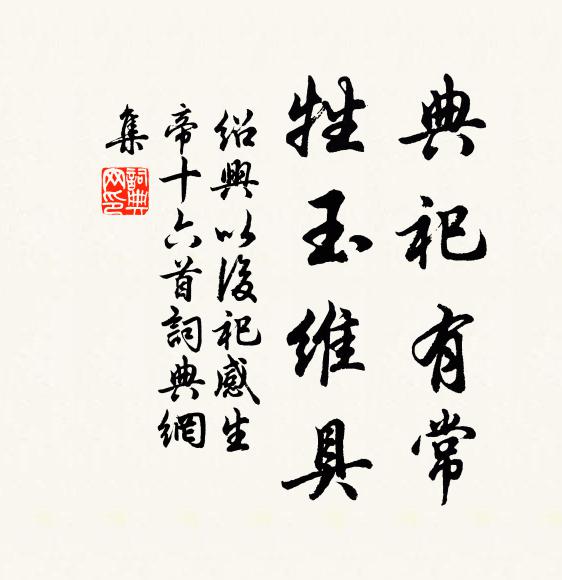 典祀有常
牲玉维具
绍興以後祀感生
帝十六首詞典網
集
詞典
网印